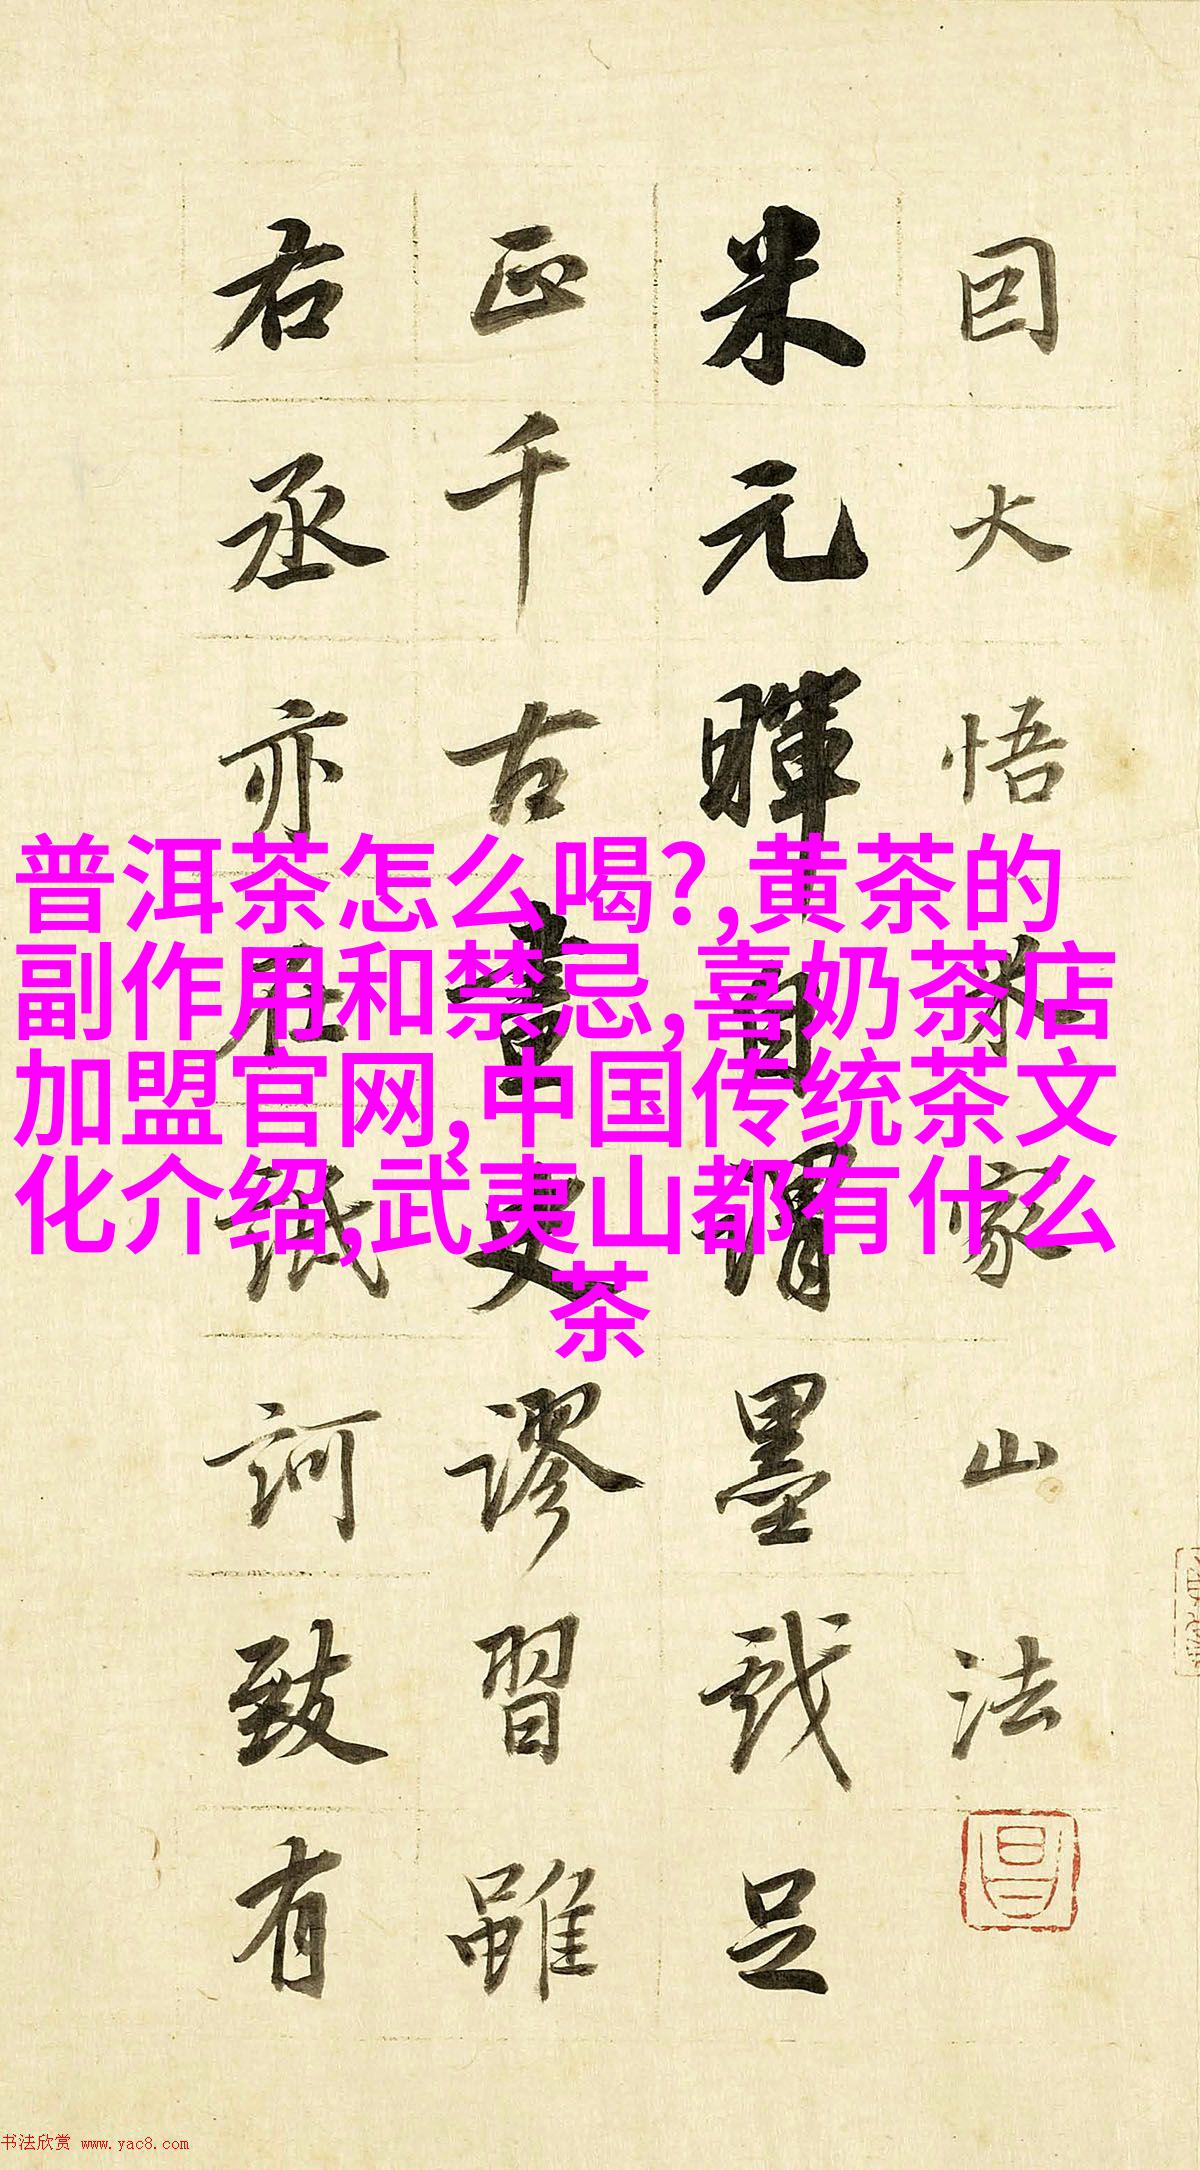 囙大悟米家山法
米元暉自謂墨戲足
正千古畫史謬習雖
右丞亦在詆訶致有
昌
普洱茶怎么喝?,黄茶的
副作用和禁忌,喜奶茶店
加盟官网,中国传统茶文
化介绍,武夷山都有什么
茶
书法欣赏 www.yac8.com